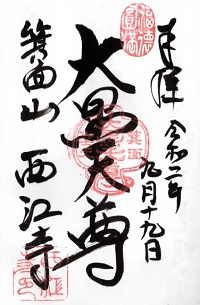 奉拝
令和二年
九月十九日
福徳
圓満
大黒天尊
箕面山 西江寺